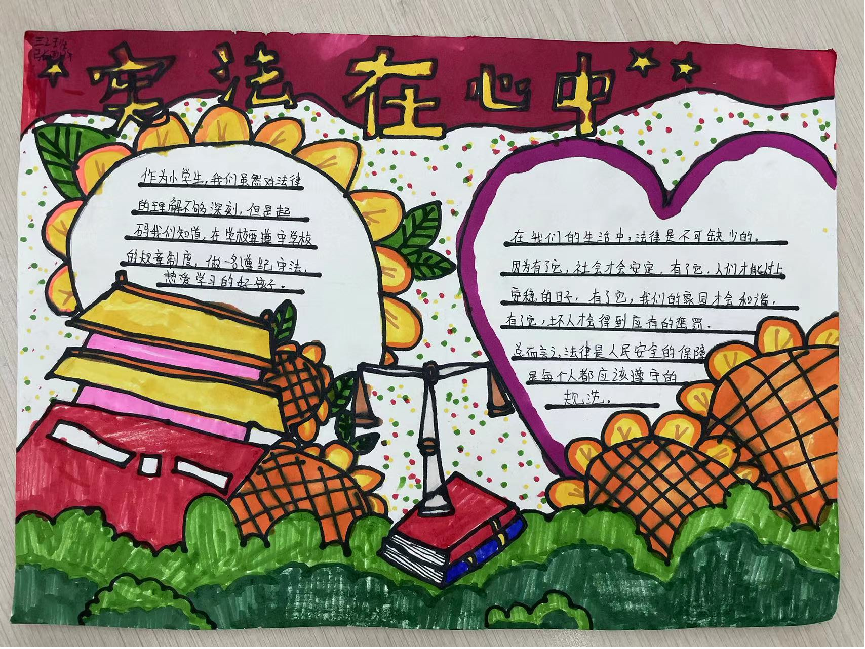 宪法在心中
作为小学生，我们虽然对法律
的理解不够深刻，但是起
码我们知道，在学校要遵守学校
的规章制度，做一名遵纪，守法，
热爱学习的好孩子。
在我们的生活中，法律是不可缺少的。
因为有了它，社会才会安定，有了它，人们才能过上
安稳的日子，有了它，我们的家园才会和谐，
有了它，坏人才会得到应有的惩罚。
总而言之，法律是人民安全的保障
是每个人都应该遵守的
规范。